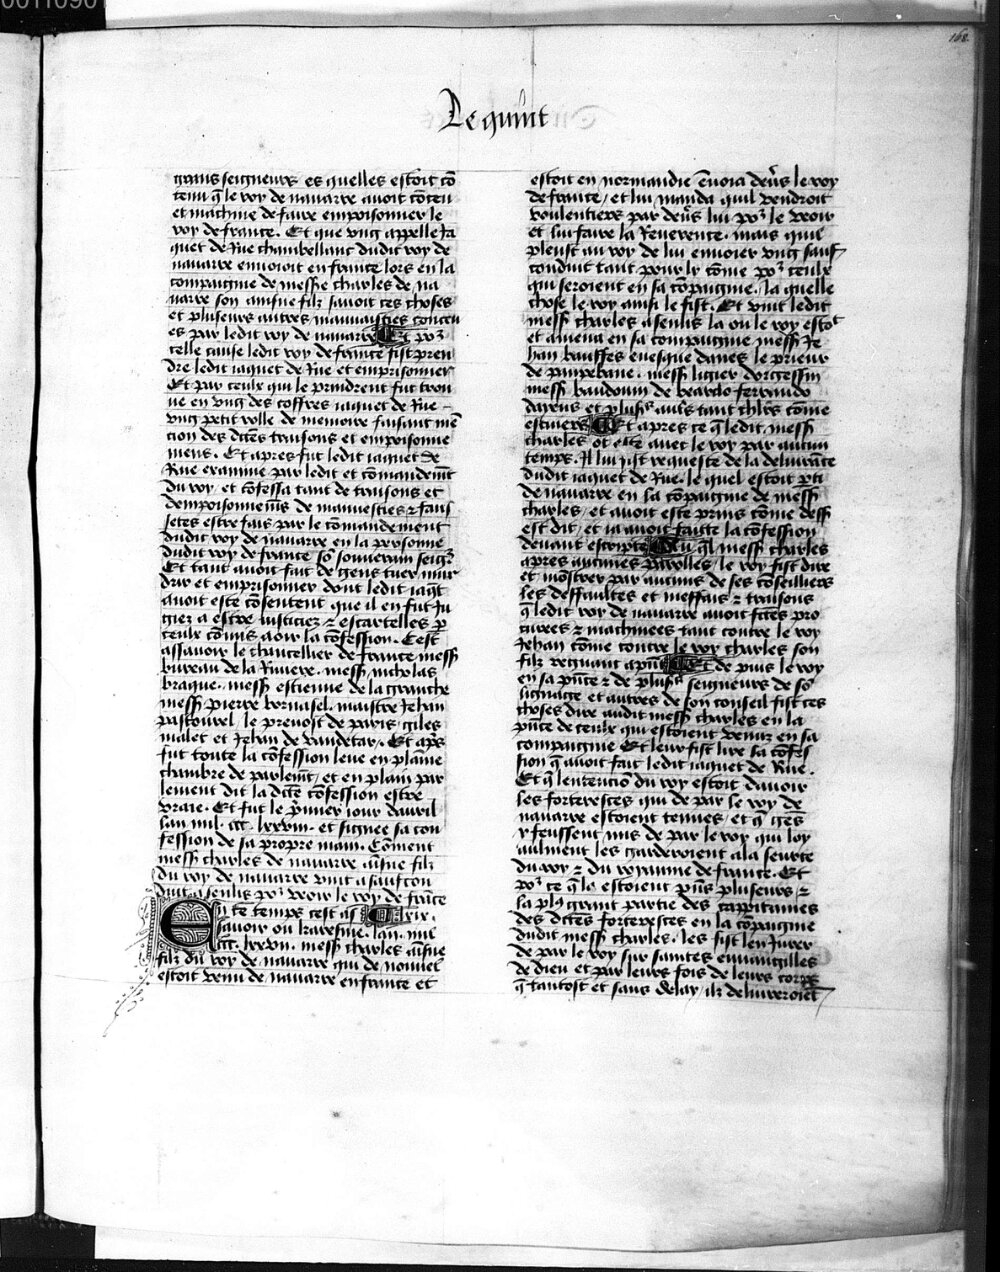 168
Le quint
grans seigneurs es quelles estoit cō
tenu q̄ le roy de nauarre auoit cōceu
et machine de faire empoisonner le
roy de france. Et que vng appelle Ja
quet de Rue chambellanc dudit roy de
nauarre enuoioit en france lors en la
compaignie de mess̄e charles de na
uarre son ainsne filz sauoit ces choses
et plusieurs autres mauuaisties conceu
es par ledit roy de nauarre Et po᷑
celle cause ledit roy de france fist pren
dre ledit iaquet de Rue et emprisonner
Et par ceulx qui le prindrent fut trou
ue en vng des coffres iaquet de Rue
vng petit rolle de memoire faisant mē
cion des dictes traisons et empoisonne
mens. Et apres fut ledit iaquet de
Rue examine par ledit et cōmandemēt
du roy / et cōfessa tant de traisons et
dempoisonnemēs de mauuesties ⁊ faus
setes estre fais par le cōmandement
dudit roy de nauarre en la personne
dudit roy de france sō souuerain seigr̄
Et tant auoit fait de gens tuer mur
drir et emprisonner dont ledit iaqt
auoit este cōsentent que il en fut iu
giez a estre iusticiez ⁊ escartelles p̱
ceulx cōmis a oir la cōfession. Cest
assauoir le chancellier de france mess̄
bureau de la Riuiere. mess̄ nicholas
braque. mess̄ estienne de la granche
mess̄ pierre bornasel. maistre Jehan
pastourel / le preuost de paris / giles
malet et Jehan de vaudetar. Et ap̄s
fut toute la cōfession leue en plaine
chambre de parlemt / et en plain par
lement dit la dicte cōfession estre
vraie. Et fut le p̄mier iour dauril
lan mil. ccc. lxxviii. et signee sa con
fession de sa propre main. Cōment
mess̄ charles de nauarre ainsne filz
du roy de nauarre vint a saufcon
duit a senlis po᷑ veoir le roy de frāce
En ce temps cest as xix.
sauoir ou karesme. lan. mil
ccc. lxxvii. mess̄ charles ainsne
filz du roy de nauarre qui de nouuel
estoit venu de nauarre en france et
estoit en normandie ēuoia deūs le roy
de france / et lui manda quil vendroit
voulentiers par deūs lui po᷑ le veoir
et lui faire la Reuerence. mais quil
pleust au roy de lui enuoier vng sauf
conduit tant pour ly cōme po᷑ ceulx
qui seroient en sa cōpaignie. la quelle
chose le roy ainsi le fist. Et vint ledit
mess̄ charles a senlis la ou le roy estot
et amena en sa compaignie mess̄ Je
han bauffes euesque danes le prieur
de pampelune. mess̄ ligier dorgessin
mess̄ baudouin de beardo ferrando
dayens et plus̄ aut̄s tant chl̄rs cōme
escuiers Et apres ce q̄ ledit mess̄
charles ot este auec le roy par aucun
temps. Il lui fist requeste de la deliurāce
dudit iaquet de Rue. le quel estoit p̱ti
de nauarre en la cōpaignie de mess̄
charles / et auoit este prins cōme dess̄
est dit / et ia auoit faicte la cōfession
deuant escripte Au q̄l mess̄ charles
apres aucunes parolles / le roy fist dire
et mōstrer par aucuns de ses cōseilliers
les deffaultes et meffais ⁊ traisons
q̄ ledit roy de nauarre auoit fc̄tes pro
curees ⁊ machinees tant contre le roy
Jehan cōme contre le roy charles son
filz regnant apn̄t Et de puis le roy
en sa pn̄ce ⁊ de plus̄ seigneurs de sō
lignaige et autres de son conseil fist ces
choses dire audit mess̄ charles en la
pn̄ce de ceulx qui estoient venuz en sa
compaignie Et leur fist lire la cōfes
sion q̄ auoit fait ledit iaquet de Rue.
Et q̄ lentencion du roy estoit dauoir
les forteresces qui de par le roy de
nauarre estoient tenues / et q̄ gēs
y feussent mis de par le roy qui loy
aulment les garderoient a la seurte
du roy ⁊ du royaume de france. Et
po᷑ ce q̄ la estoient pn̄s plusieurs ⁊
la plꝯ grant partie des cappitaines
des dictes forteresces en la cōpaignie
dudit mess̄ charles. les fist len iurer
de par le roy sur saintes euuangilles
de dieu et par leurs fois de leurs corps
q̄ tantost et sans delay / ilz deliureroiēt